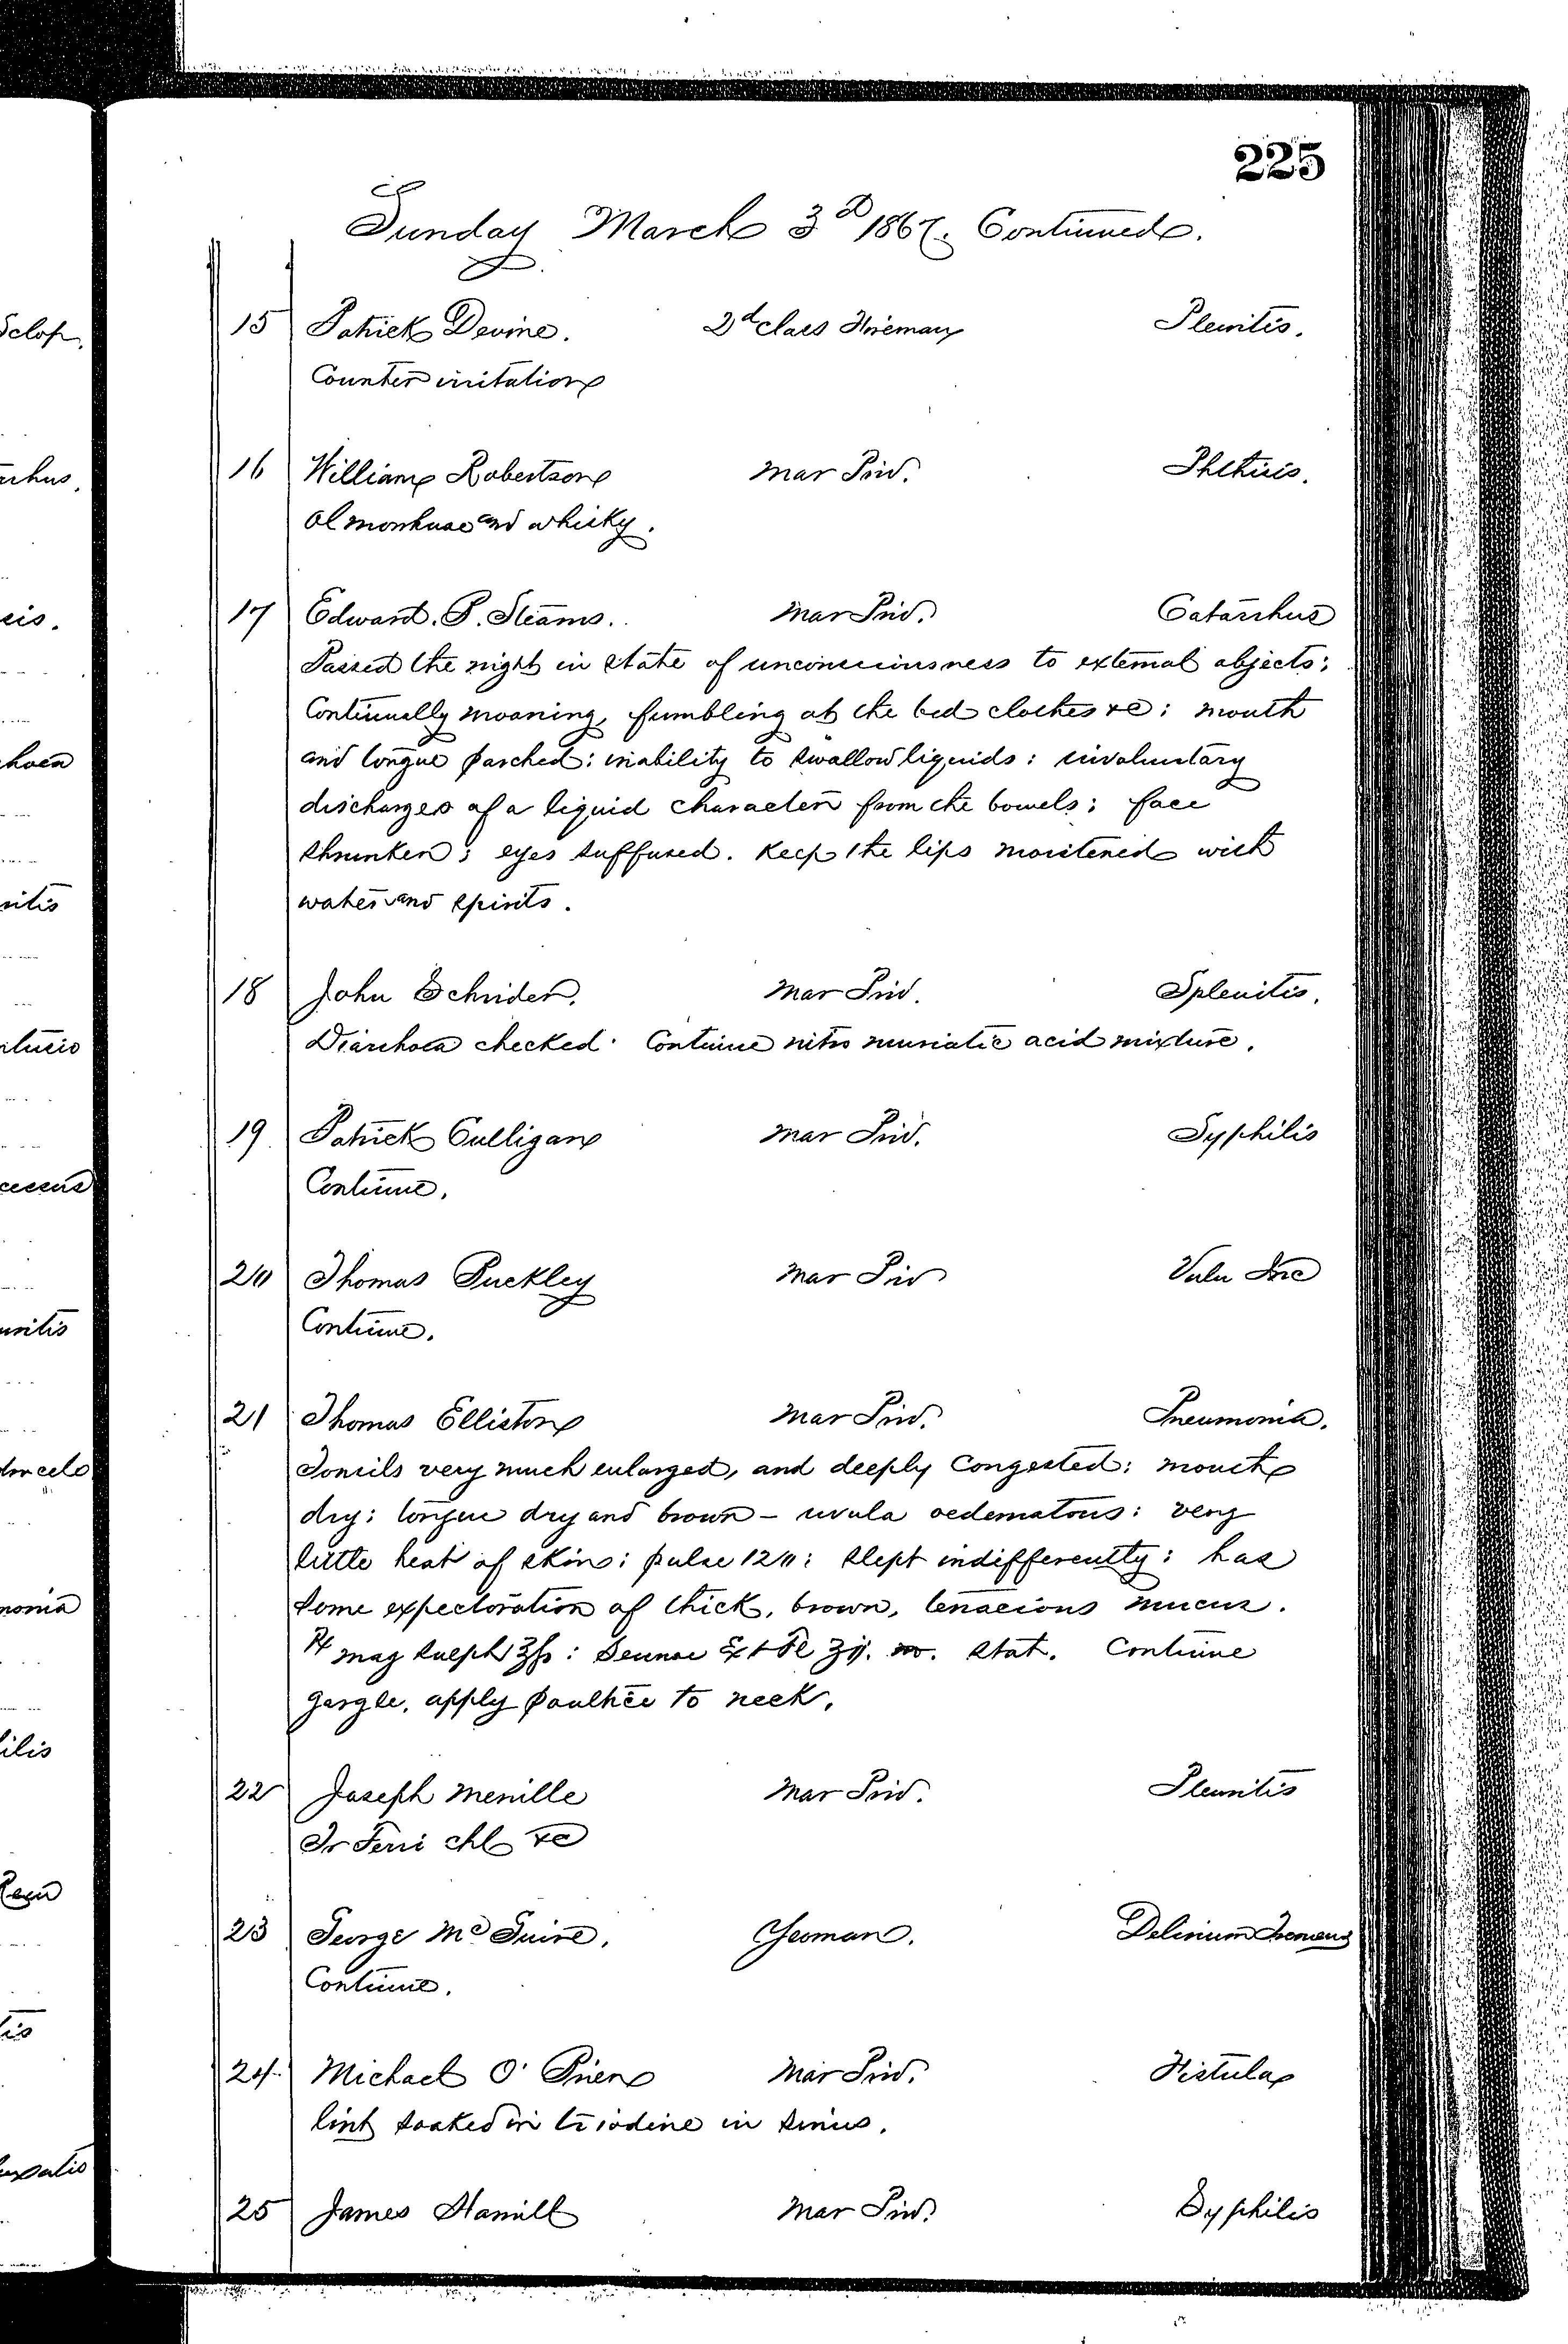 225
Sunday March 3d 1867. Continued.
15 Patrick Devine. 2d class Fireman Pleuritis.
Counter irritation
16 William Robertson Mar Priv. Phthisis.
Ol morrhuae and whisky.
17 Edward. P. Stearns. Mar Priv. Catarrhus
Passed the night in state of unconsciousness to external objects;
Continually moaning, fumbling at the bed clothes &c; mouth
and tongue parched: inability to swallow liquids: involuntary
discharges of a liquid character from the bowels; face
shrunken; eyes suffused. Keep the lips moistened with
water and spirits.
18 John Schrider. Mar Priv. Splenitis.
Diarrhoea checked. Continue nitro muriatic acid mixture.
19 Patrick Culligan Mar Priv. Syphilis
Continue.
20 Thomas Puckley Mar Priv Vuln Inc
Continue.
21 Thomas Elliston Mar Priv. Pneumonia.
Tonsils very much enlarged, and deeply congested: mouth
dry: tongue dry and brown - uvula oedematous: very
little heat of skin: pulse 120: slept indifferently: has
some expectoration of thick, brown, tenacious mucus.
℞ mag sulph ℥ss: Sennae Ext Fl ʒij. m. stat. Continue
gargle, apply poultice to neck.
22 Joseph Merville Mar Priv. Pleuritis
Tr Ferri chl &c
23 George McGuire. Yeoman. Delirium Tremens
Continue.
24 Michael O'Brien Mar Priv. Fistula
lint soaked in tr iodine in sinus.
25 James Hamill Mar Priv. Syphilis